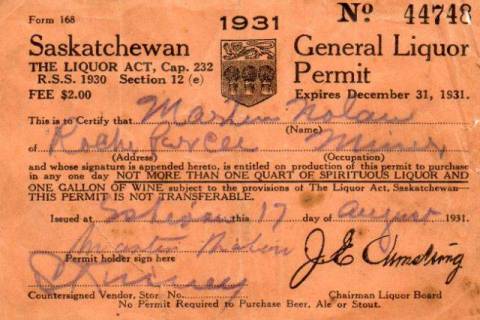 Form 168
1931
No 44748
Saskatchewan
THE LIQUOR ACT, Cap. 232
R.S.S. 1930 Section 12 (e)
FEE $2.00
General Liquor
Permit
Expires December 31, 1931.
This is to Certify that Martin Nolan
(Name)
of Roche Percee Miner
(Address) (Occupation)
and whose signature is appended hereto, is entitled on production of this permit to purchase
in any one day NOT MORE THAN ONE QUART OF SPIRITUOUS LIQUOR AND
ONE GALLON OF WINE subject to the provisions of The Liquor Act, Saskatchewan—
THIS PERMIT IS NOT TRANSFERABLE.
Issued at Estevan 17 day of August 1931.
Martin Nolan
Permit holder sign here
J E Armstrong
Countersigned Vendor, Stor. No.
Chairman Liquor Board
No Permit Required to Purchase Beer, Ale or Stout.